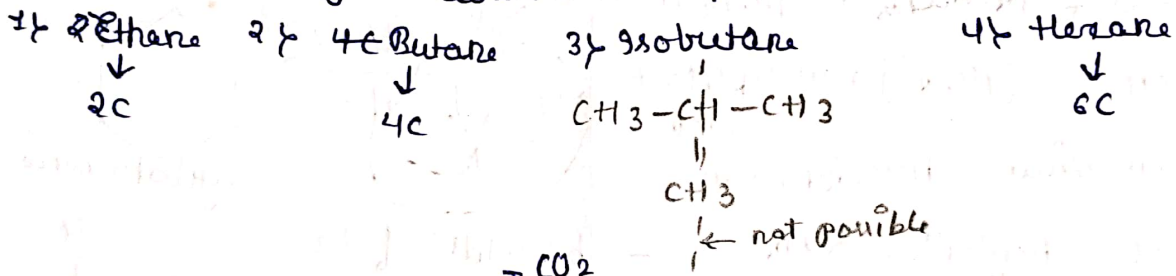 1} Ethane 2} 4C Butane 3} Isobutane 4} Hexane
↓ ↓ ↓
2C 4C CH3-CH-CH3 6C
CH3
← not possible
- CO2